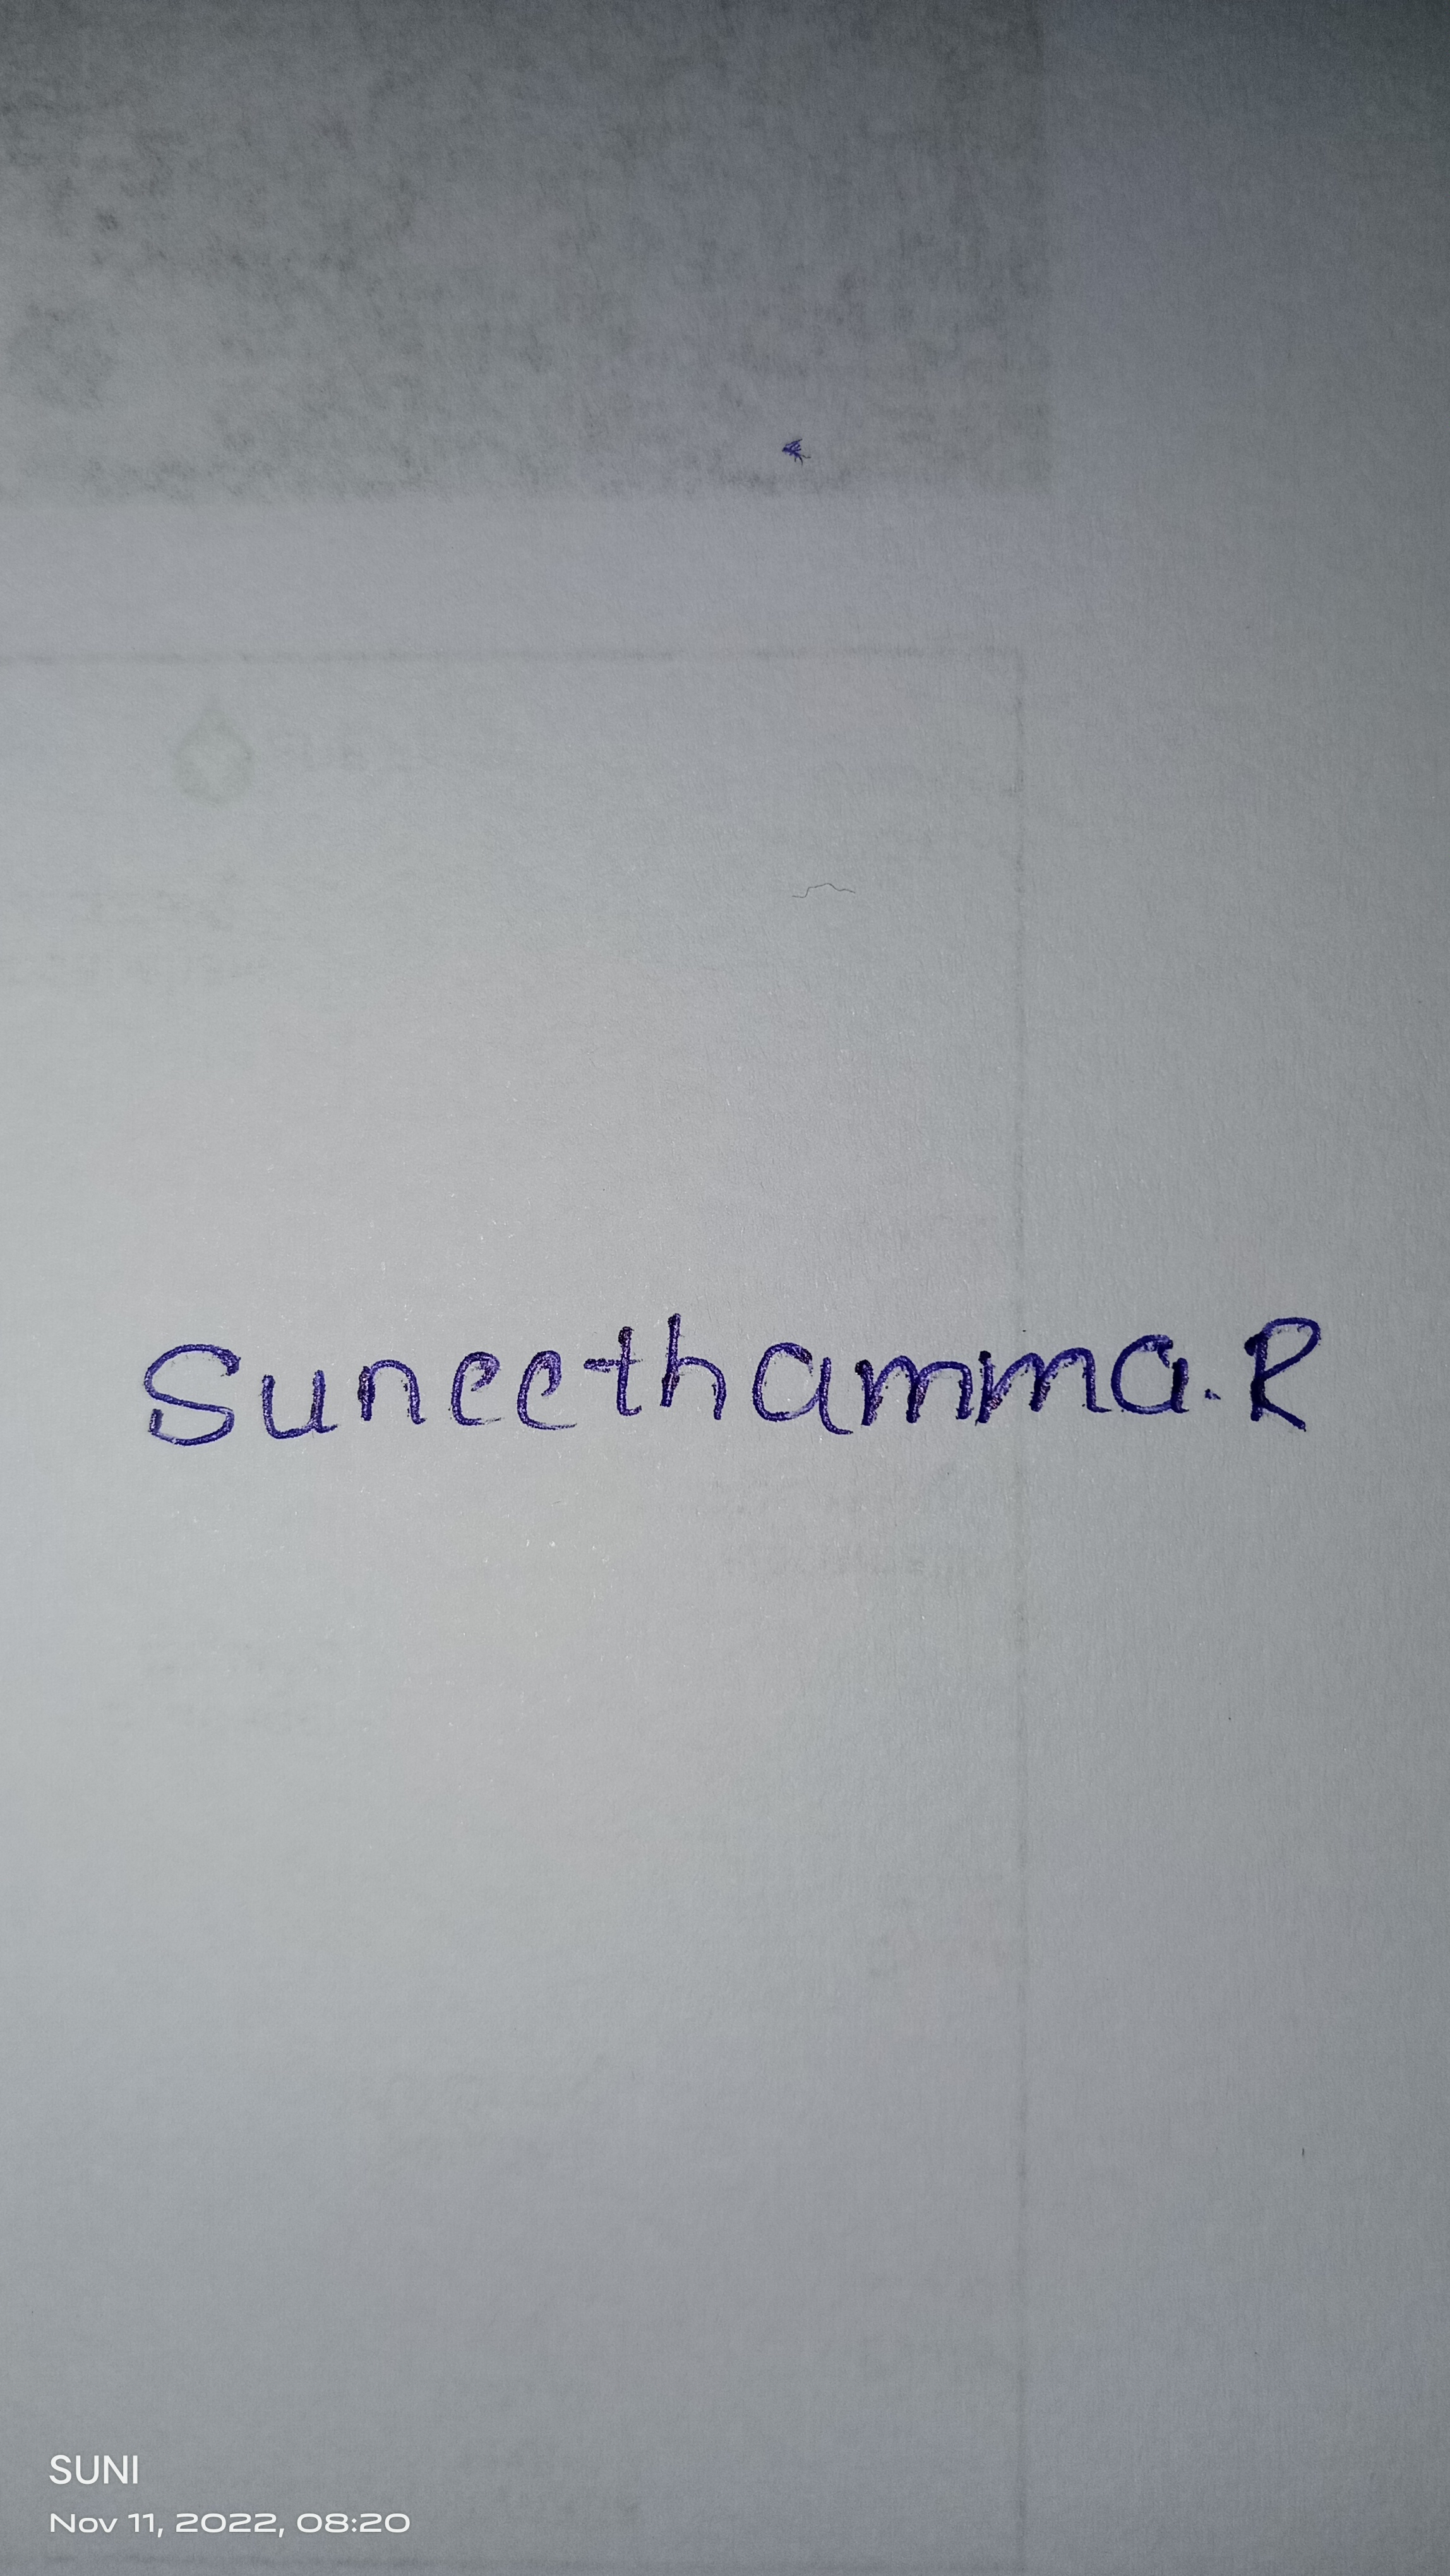 Suneethamma.R
SUNI
Nov 11, 2022, 08:20